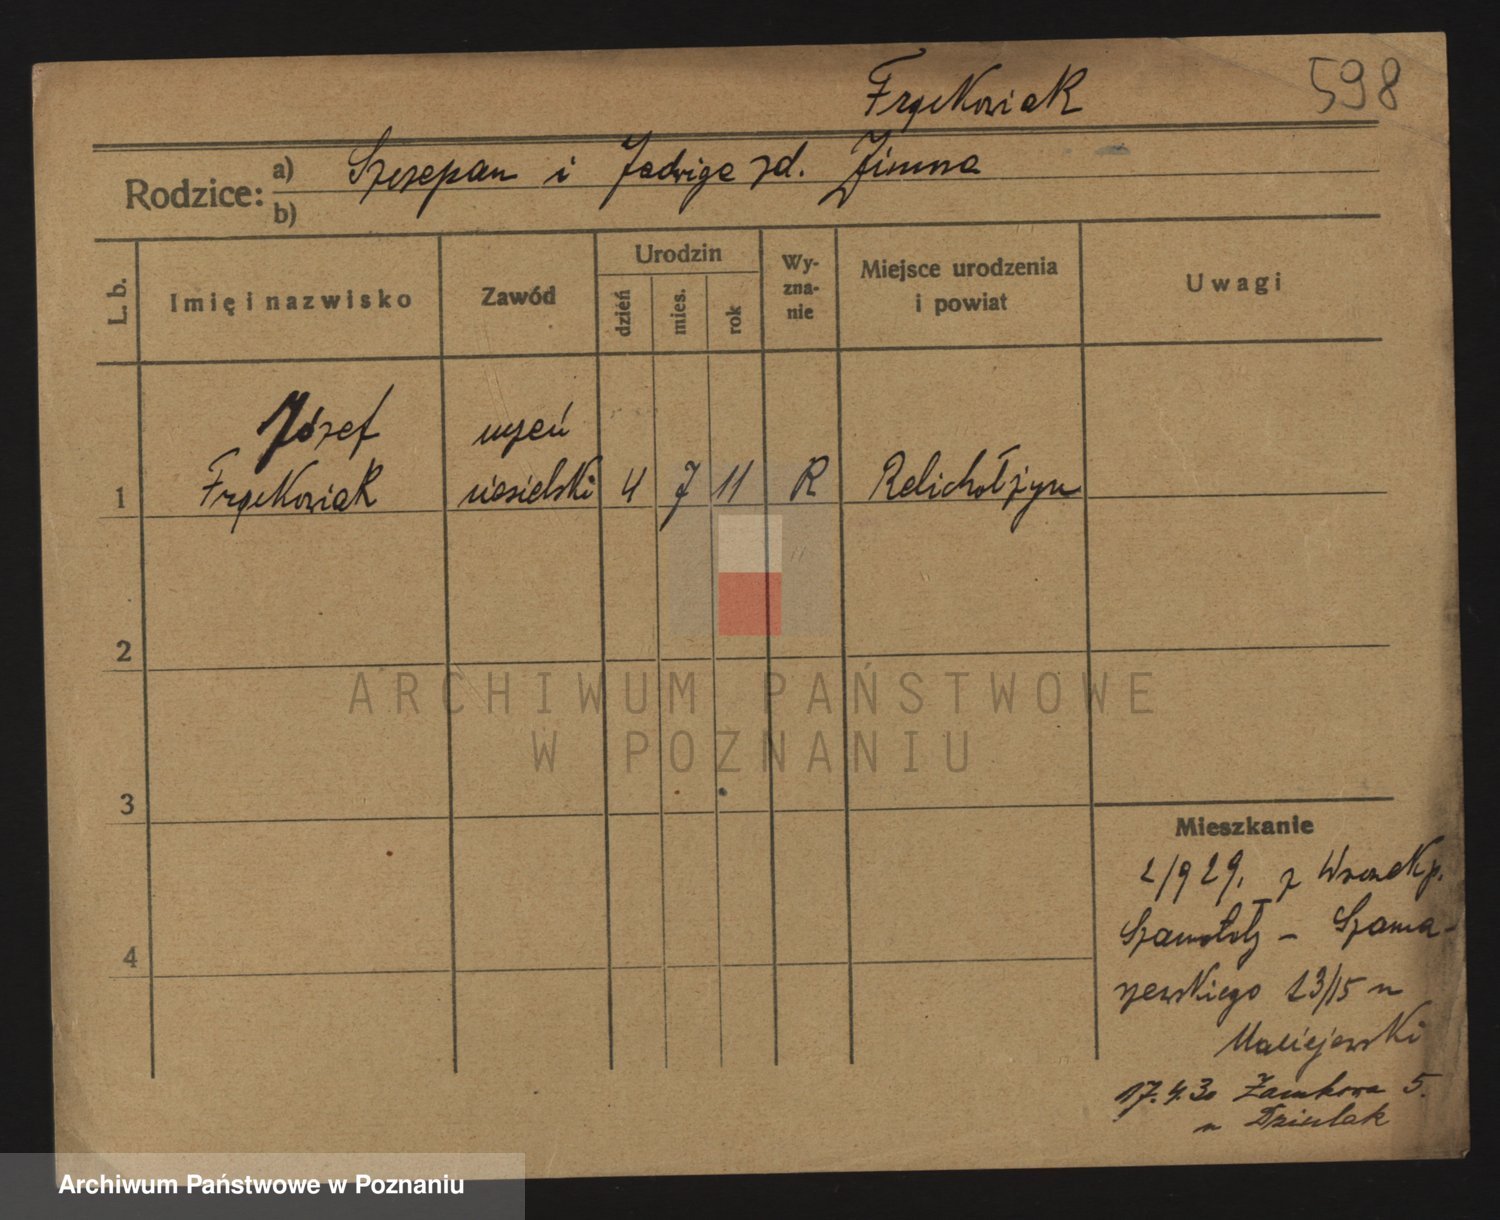 Frąckowiak
598
Rodzice:
a) Szczepan i Jadwiga zd. Zimna
b)
L. b.
Imię i nazwisko
Zawód
Urodzin
dzień
mies.
rok
Wy-
zna-
nie
Miejsce urodzenia
i powiat
Uwagi
Józef uczeń
1 Frąckowiak ciesielski 4 7 11 R
2
3
4
Mieszkanie
2/929. z Wronek p.
Szamotuły - Szama-
rzewskiego 13/15 u
Maciejewski
17.4.30 Zamkowa 5.
u
ARCHIWUM PAŃSTWOWE
W POZNANIU
Archiwum Państwowe w Poznaniu